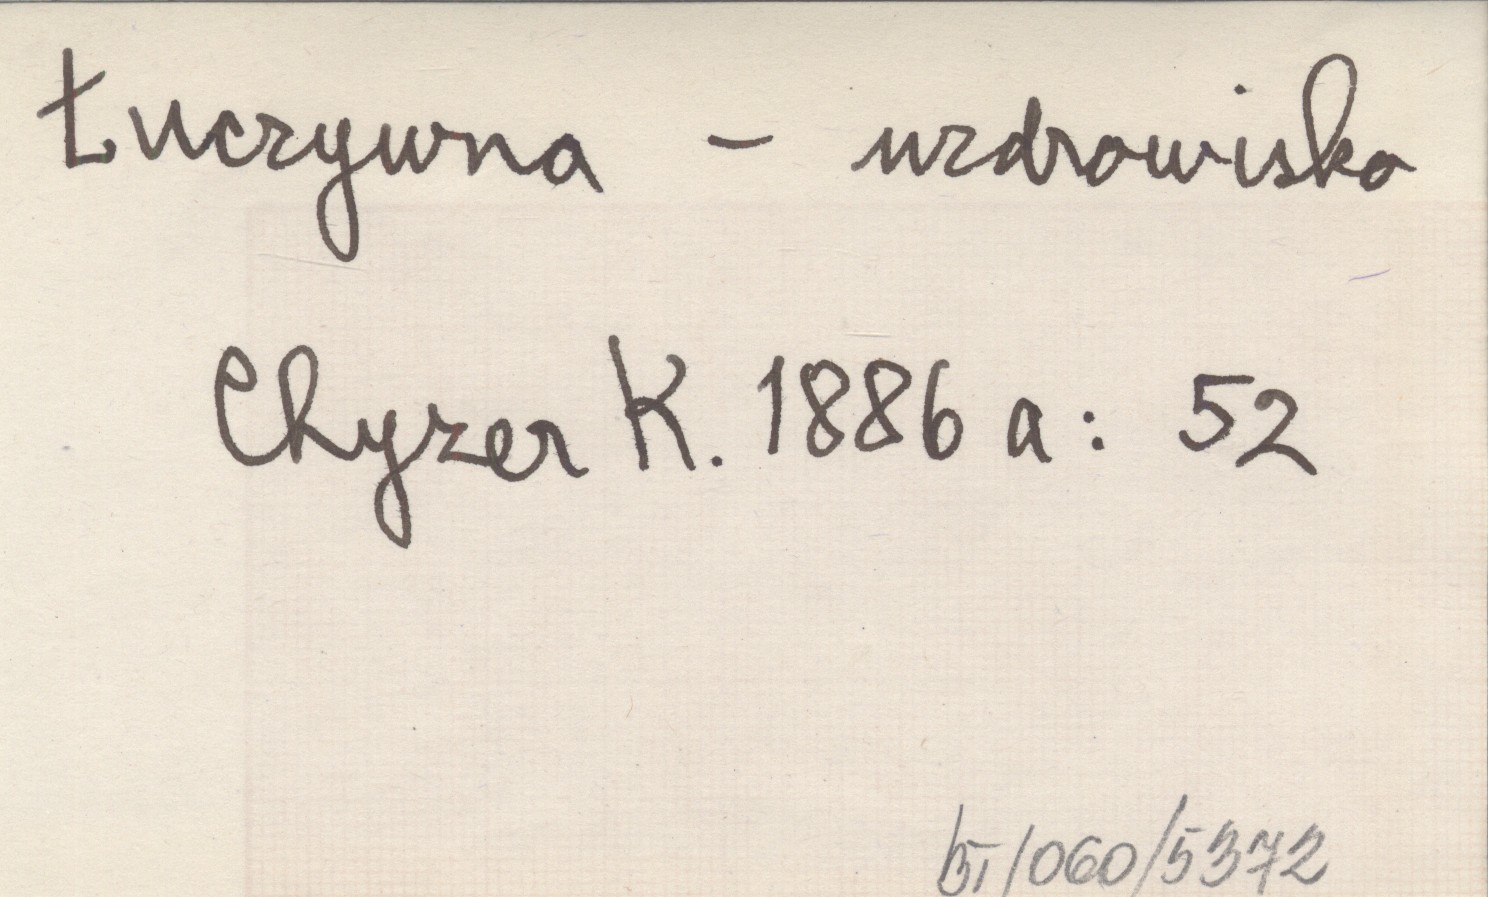 Łuczywna - uzdrowiska
Chyzer K. 1886 a: 52
/060/5372